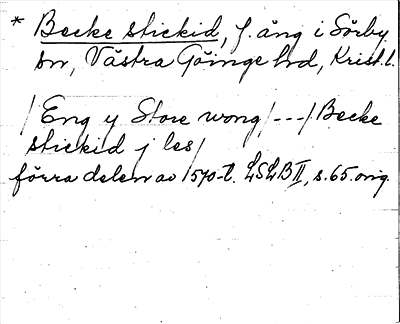 * Becke stickid, f. äng i Sörby
sn, Västra Göinge hd, Krist. l.
/Eng y Store wong/---/Becke
stickid j les/
förra delen av 1570-t. LSLB II, s. 65. orig.